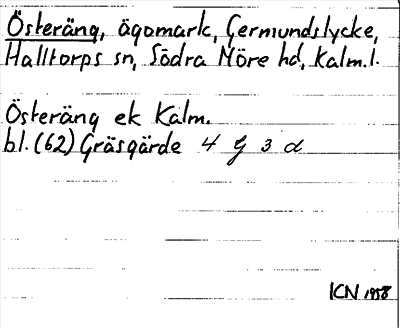 Österäng, ägomark, Germundslycke,
Halltorps sn, Södra Möre hd, Kalm.l.
Österäng ek Kalm.
bl. (62) Gräsgärde 4 G 3 d
ICN 1958